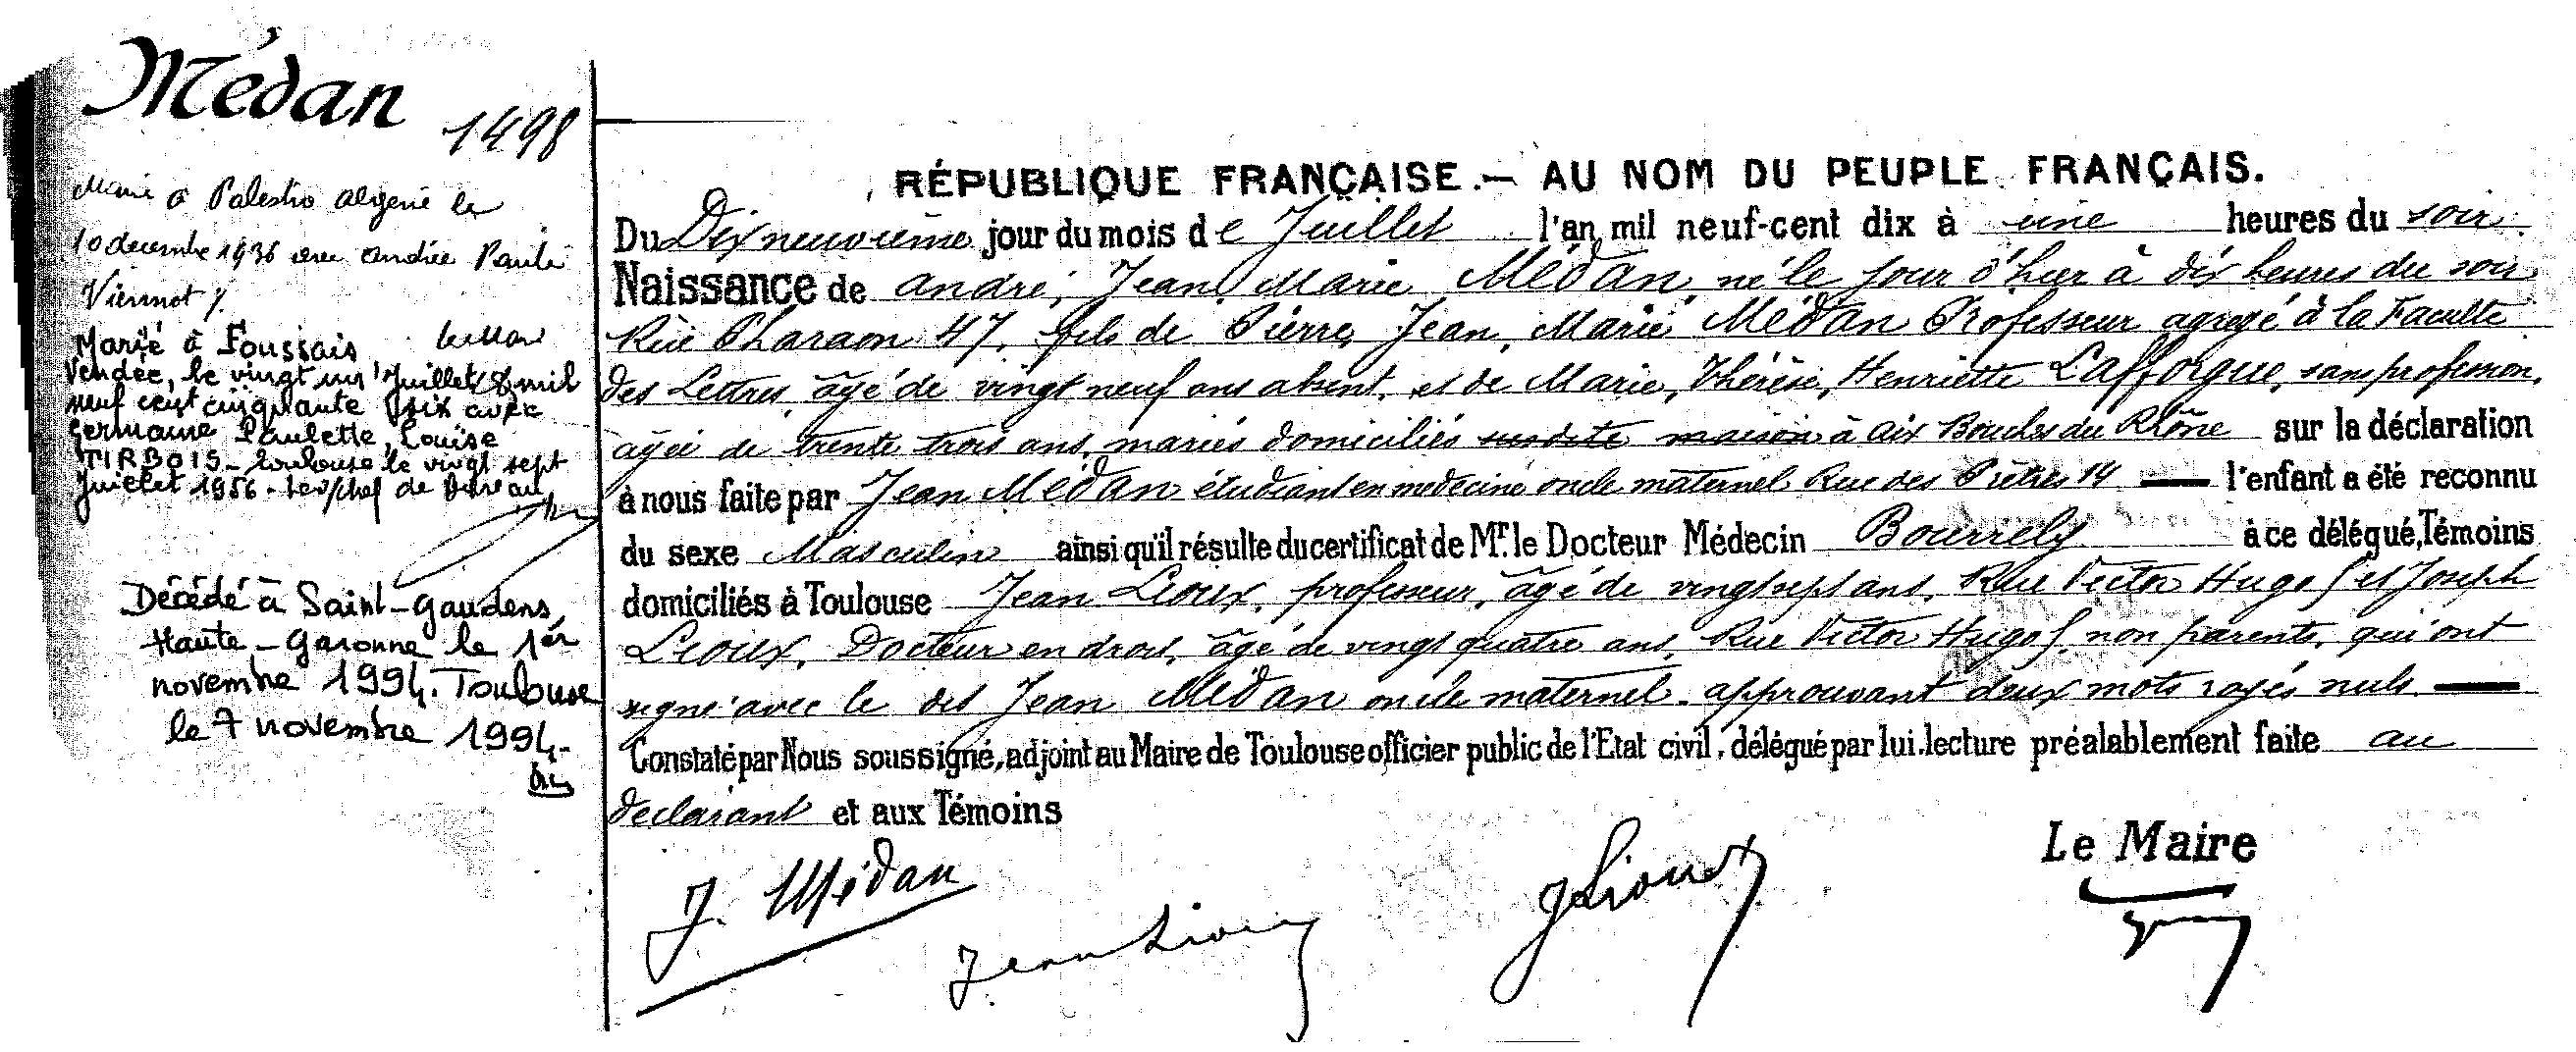 Médan
1498
Marié à Palestro Algérie le
10 decembre 1936 avec Andrée Paule
Viennot /.
Marié à Foussais
Vendée, le vingt un Juillet mil
neuf cent cinquante six avec
Germaine Paulette, Louise
TIRBOIS - Toulouse le vingt sept
Juillet 1956 - Le chef de Bureau
Décédé à Saint-Gaudens,
Haute-Garonne le 1er
novembre 1994. Toulouse
le 7 novembre 1994.
RÉPUBLIQUE FRANÇAISE. — AU NOM DU PEUPLE FRANÇAIS.
Du Dix neuvième jour du mois de Juillet l'an mil neuf-cent dix à une heures du soir.
Naissance de André, Jean, Marie MÉDAN, né le jour d'hier à dix heures du soir
Rue Pharaon 47, fils de Pierre, Jean, Marie MÉDAN Professeur agregé à la Faculté
des Lettres, âgé de vingt neuf ans absent, et de Marie, Thérèse, Henriette Lafforgue, sans profession,
âgée de trente trois ans, mariés domiciliés susdite maison à Aix Bouches du Rhône sur la déclaration
à nous faite par Jean MÉDAN étudiant en médecine oncle maternel Rue des Prêtres 14 — l'enfant a été reconnu
du sexe Masculin ainsi qu'il résulte du certificat de Mr. le Docteur Médecin Bourrely à ce délégué, Témoins
domiciliés à Toulouse Jean Lioux, professeur, âgé de vingt sept ans, Rue Victor Hugo et Joseph
Lioux, Docteur en droit, âgé de vingt quatre ans, Rue Victor Hugo non parents, qui ont
signé avec le dit Jean MÉDAN oncle maternel - approuvant deux mots rayés nuls —
Constaté par Nous soussigné, adjoint au Maire de Toulouse officier public de l'Etat civil, délégué par lui. lecture préalablement faite au
déclarant et aux Témoins
Le Maire
J. Médan
Jean Lioux
J Lioux